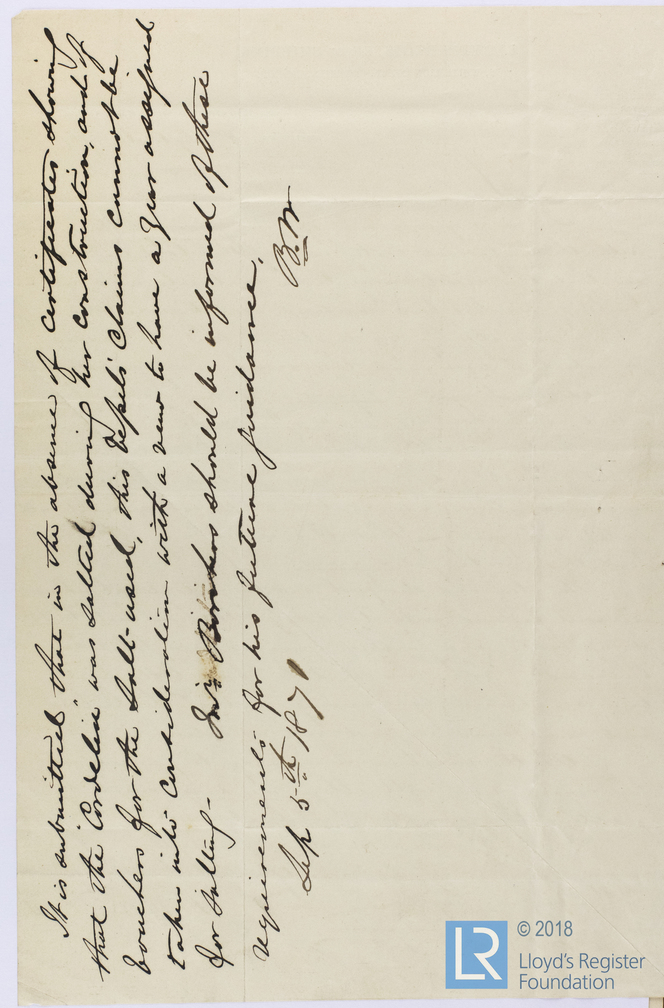 It is submitted that in the absence of certificates showing
that the "Cordelia" was salted during her construction, and of
vouchers for the Salt used, this Vessels' Claims cannot be
taken into Consideration with a view to have a year assigned
for Salting -
Mr. should be informed of these
requirements for his future guidance.
B.W
Sep 5th 1871
LR
© 2018
Lloyd's Register
Foundation